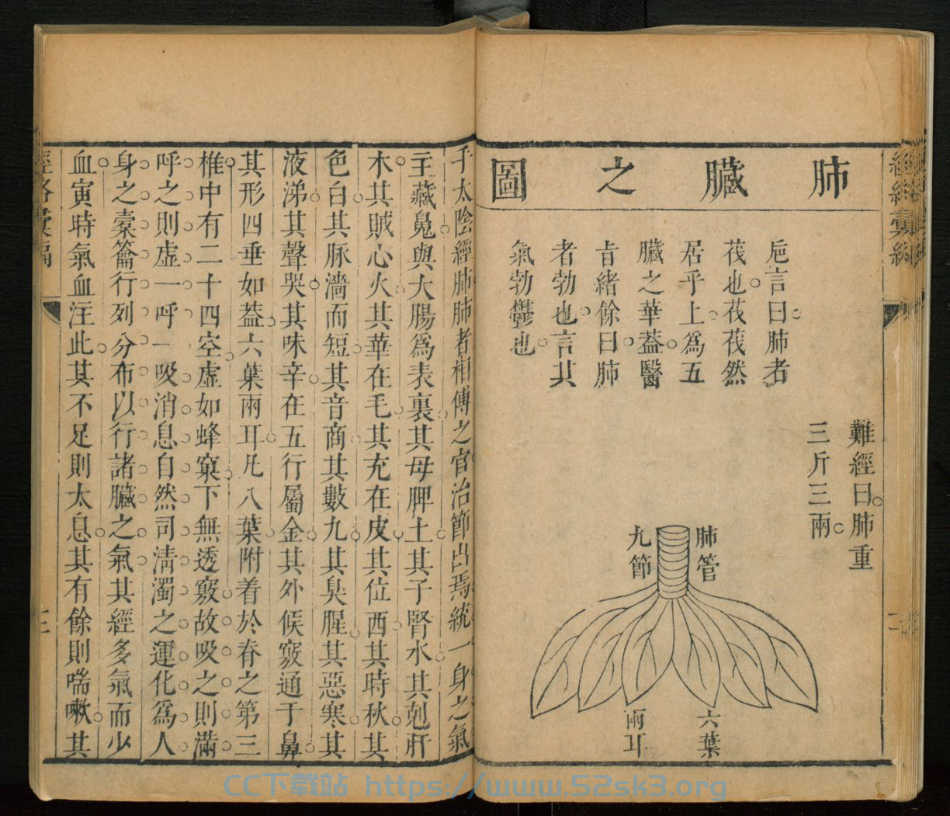 肺臟之圖
難經曰肺重
三斤三兩
巵言曰肺者
茷也茷茷然
居乎上爲五
臟之華蓋醫
㫖緒餘曰肺
者勃也言其
氣勃鬱也
肺管
九節
六葉
兩耳
手太陰經肺肺者相傅之官治節出焉統一身之氣
主藏魄與大腸爲表裏其母脾土其子腎水其剋肝
木其賊心火其華在毛其充在皮其位西其時秋其
色白其脉濇而短其音商其數九其臭腥其惡寒其
液涕其聲哭其味辛在五行屬金其外候竅通于鼻
其形四垂如蓋六葉兩耳凡八葉附着於脊之第三
椎中有二十四空虛如蜂窠下無透竅故吸之則滿
呼之則虛一呼一吸消息自然司淸濁之運化爲人
身之橐籥行列分布以行諸臟之氣其經多氣而少
血寅時氣血注此其不足則太息其有餘則喘嗽其
經絡彚編
三
CC下载站 https://www.52sk3.org